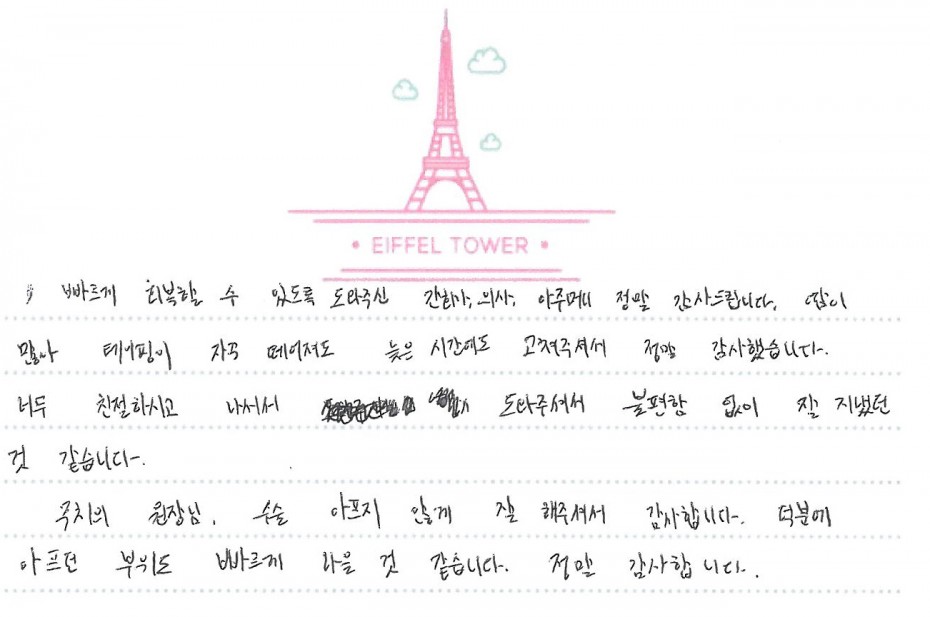 EIFFEL TOWER
빠르게 회복할 수 있도록 도와주신 간호사, 의사, 아주머니 정말 감사드립니다. 땀이
많아 테이핑이 자꾸 떼어져도 늦은 시간에도 고쳐주셔서 정말 감사했습니다.
너무 친절하시고 나서서 도와주셔서 불편함 없이 잘 지냈던
것 같습니다.
원장님, 수술 아프지 않게 잘 해주셔서 감사합니다. 덕분에
아프던 부위도 빠르게 나을 것 같습니다. 정말 감사합니다.